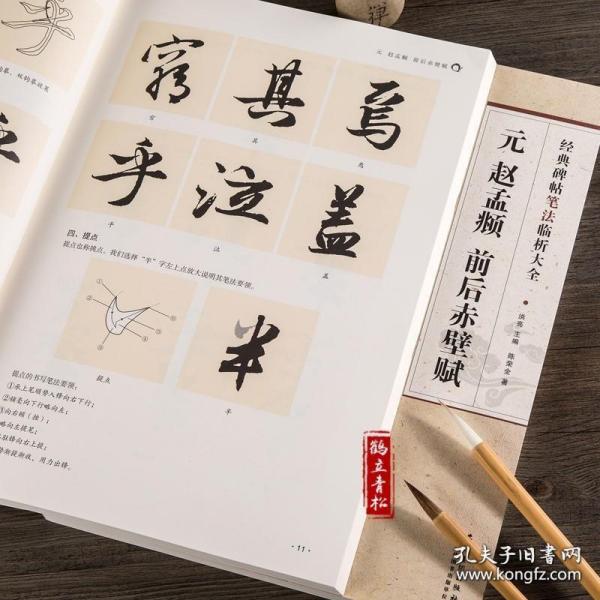 禅
元 赵孟頫 前后赤壁赋
双钩摹效果
窮 其 焉
穷 其 焉
乎 泣 盖
乎 泣 盖
四、提点
提点也称挑点，我们选择“半”字左上点放大说明其笔法要领。
半
提点 半
提点的书写笔法要领：
①承上笔顺势入锋向右下行；
②接着向下行略向左；
③向右顿（按）；
略向左提笔；
驻锋向右上提；
势渐提渐收，用力出锋。
·11·
经典碑帖笔法临析大全
元 赵孟頫 前后赤壁赋
洪亮 主编 陈荣全 著
鹤立青松
孔夫子旧书网
www.kongfz.com